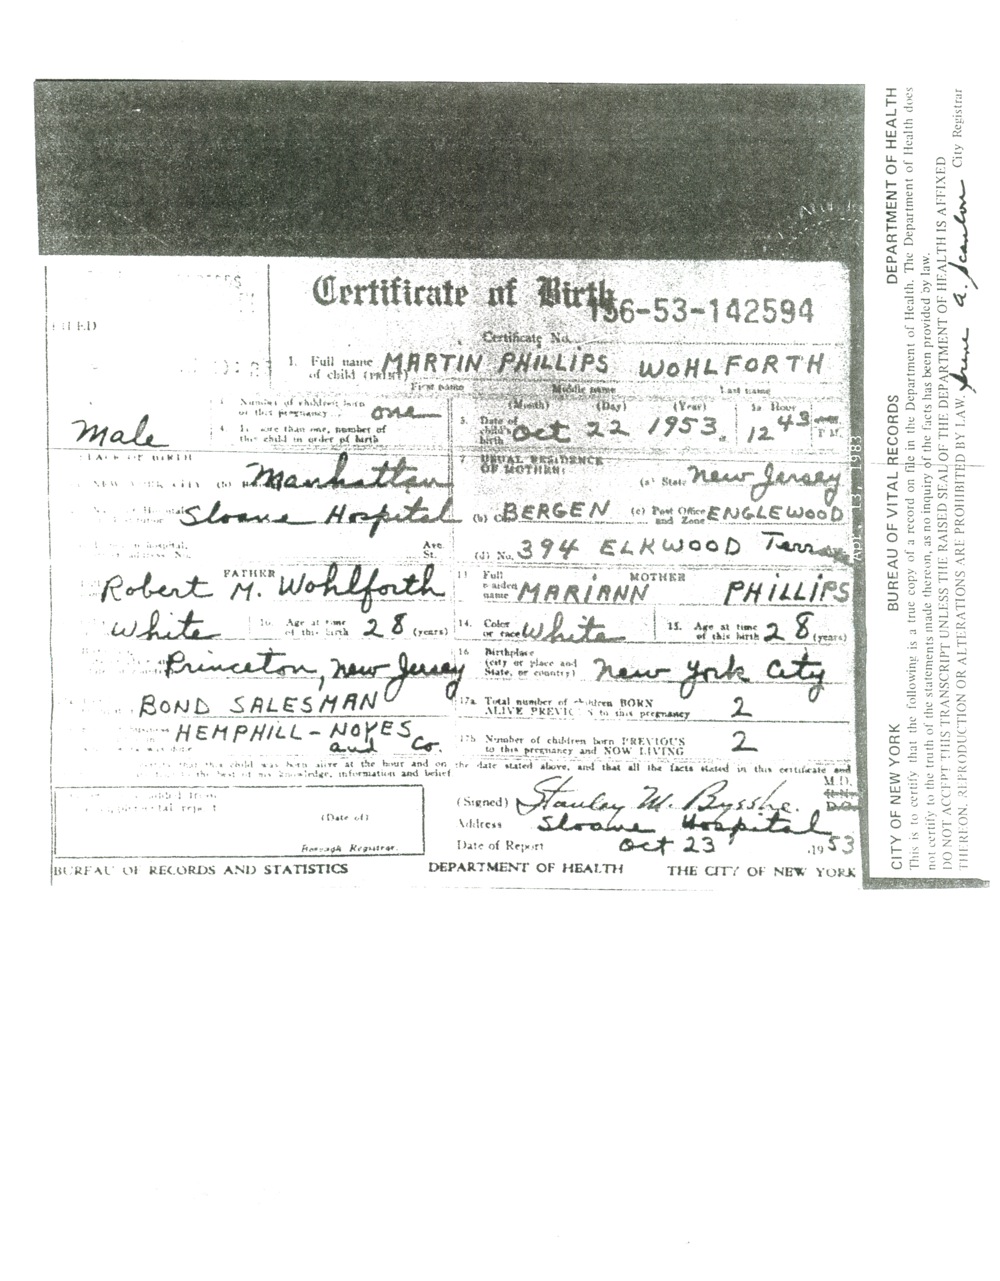 FILED
Certificate of Birth
156-53-142594
Certificate No.
1. Full name of child (PRINT) MARTIN PHILLIPS WOHLFORTH
First name Middle name Last name
Male
Number of children born of this pregnancy one
4. If more than one, number of this child in order of birth
5. Date of child's birth (Month) (Day) (Year) Oct 22 1953
5a Hour 12 43 P.M.
PLACE OF BIRTH
NEW YORK CITY (b) Manhattan
Sloane Hospital
Ave.
St.
7. USUAL RESIDENCE OF MOTHER:
(a) State New Jersey
(b) Co. BERGEN (c) Post Office and Zone ENGLEWOOD
(d) No. 394 ELKWOOD Terrace
FATHER
Robert M. Wohlforth
White
Age at time of this birth 28 (years)
Princeton, New Jersey
BOND SALESMAN
HEMPHILL - NOYES and Co.
13 Full maiden name MOTHER
MARIANN PHILLIPS
14. Color or race White
15. Age at time of this birth 28 (years)
16 Birthplace (city or place and State, or country) New York City
17a Total number of children BORN ALIVE PREVIOUS to this pregnancy 2
17b Number of children born PREVIOUS to this pregnancy and NOW LIVING 2
that this child was born alive at the hour and on the date stated above, and that all the facts stated in this certificate and
to the best of my knowledge, information and belief
M.D.
D.O.
(Signed) Stanley M. Bysshe
Address Sloane Hospital
Date of Report Oct 23 1953
(Date of)
Borough Registrar.
BUREAU OF RECORDS AND STATISTICS DEPARTMENT OF HEALTH THE CITY OF NEW YORK
APR 13, 1983
CITY OF NEW YORK BUREAU OF VITAL RECORDS DEPARTMENT OF HEALTH
This is to certify that the following is a true copy of a record on file in the Department of Health. The Department of Health does
not certify to the truth of the statements made thereon, as no inquiry of the facts has been provided by law.
DO NOT ACCEPT THIS TRANSCRIPT UNLESS THE RAISED SEAL OF THE DEPARTMENT OF HEALTH IS AFFIXED
THEREON. REPRODUCTION OR ALTERATIONS ARE PROHIBITED BY LAW. Irene A. Scanlon City Registrar